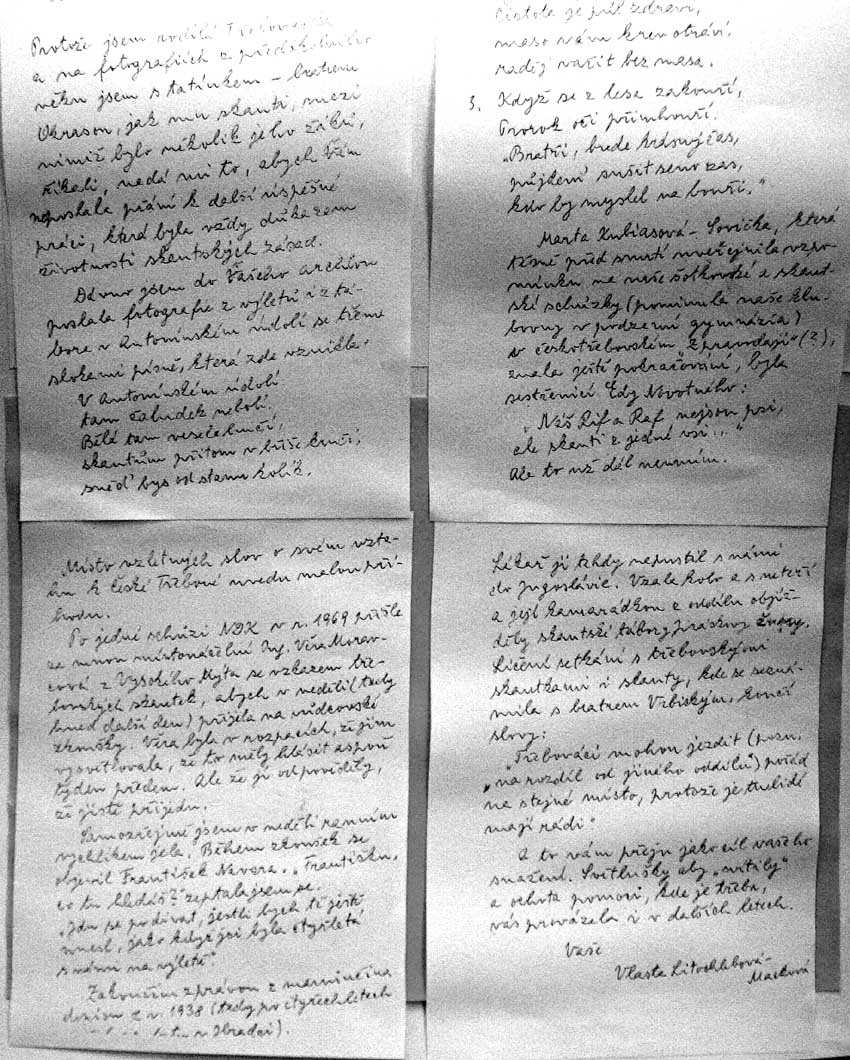 Protože jsem rodilá Třebovačka
a na fotografiích z předškolního
věku jsem s tatínkem – bratrem
Okrasou, jak mu skauti, mezi
nimiž bylo několik jeho žáků,
říkali, nedá mi to, abych Vám
neposlala přání k další úspěšné
práci, která byla vždy důkazem
životnosti skautských zásad.
Dávno jsem do Vašeho archivu
poslala fotografie z výletů i z tá-
bora v Antonínském údolí se třemi
slokami písně, která zde vznikla.
V Antonínském údolí
tam žaludek nebolí,
Bělá tam vesele hučí,
skautům přitom v břiše kručí,
sněd' bys od stanu kolík.
Čistota je půl zdraví,
maso vám krev otráví,
raděj vařit bez masa.
3. Když se z lesa zakouří,
Prorok oči přimhouří:
„Bratři, bude krásný čas,
půjdem sušit seno zas,
kdo by myslel na bouři."
Marta Kubiasová – Sovička, která
těsně před smrtí uveřejnila vzpo-
mínku na naše šotkovské a skaut-
ské schůzky (pominula naše klu-
bovny v podzemí gymnázia)
v českotřebovském „Zpravodaji" (?),
znala ještě pokračování, byla
sestřenicí Edy Novotného:
„Náš Rif a Raf nejsou psi,
ale skauti z jedné vsi..."
Ale to už dál neumím.
Místo vzletných slov o svém vzta-
hu k České Třebové uvedu malou pří-
hodu.
Po jedné schůzi NJK v r. 1969 přišla
za mnou místonáčelní Ing. Věra Morav-
cová z Vysokého Mýta se vzkazem tře-
bovských skautek, abych v neděli (tedy
hned další den) přijela na vůdcovské
zkoušky. Věra byla v rozpacích, že jim
vysvětlovala, že to měly hlásit aspoň
týden předem. Ale že jí odpověděly,
že jistě přijedu.
Samozřejmě jsem v neděli ranním
rychlíkem jela. Během zkoušek se
objevil František Navara. „Františku,
co tu hledáš?" zeptala jsem se.
„Jdu se podívat, jestli bych tě ještě
unesl, jako když jsi byla čtyřletá
s námi na výletě."
Zakončím zprávou z maminčina
deníku z r. 1938 (tedy po čtyřech letech
v Hradci).
Lékař ji tehdy nepustil s námi
do Jugoslávie. Vzala kolo a s neteří
a její kamarádkou z oddílu objíž-
děly skautské tábory Jiráskovy župy.
Líčení setkání s třebovskými
skautkami i skauty, kde se sezná-
mila s bratrem Vrbickým, končí
slovy:
„Třebováci mohou jezdit (pozn.
„na rozdíl od jiného oddílu") pořád
na stejné místo, protože je tu lidé
mají rádi"
A to vám přeju jako cíl vašeho
snažení. Světlušky aby „svítily"
a ochota pomoci, kde je třeba,
vás provázela i v dalších letech.
Vaše
Vlasta Litochlebová-
Macková